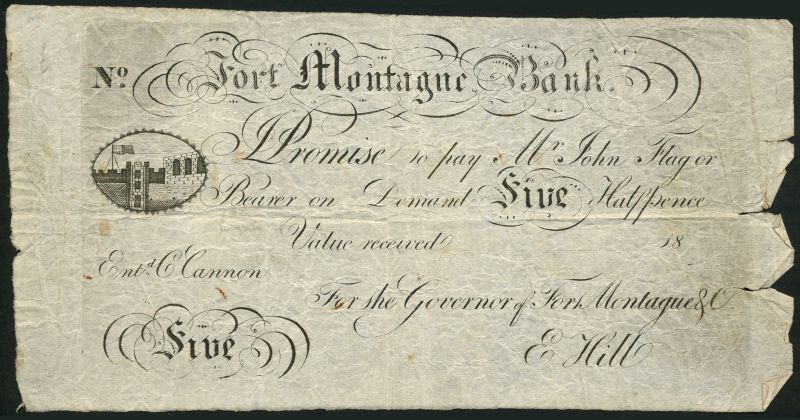 No. Fort Montague Bank.
I Promise to pay Mr. John Flag or
Bearer on Demand Five Halfpence
Value received 18
Entd. C Cannon
For the Governor of Fort Montague & Co
Five
E Hill